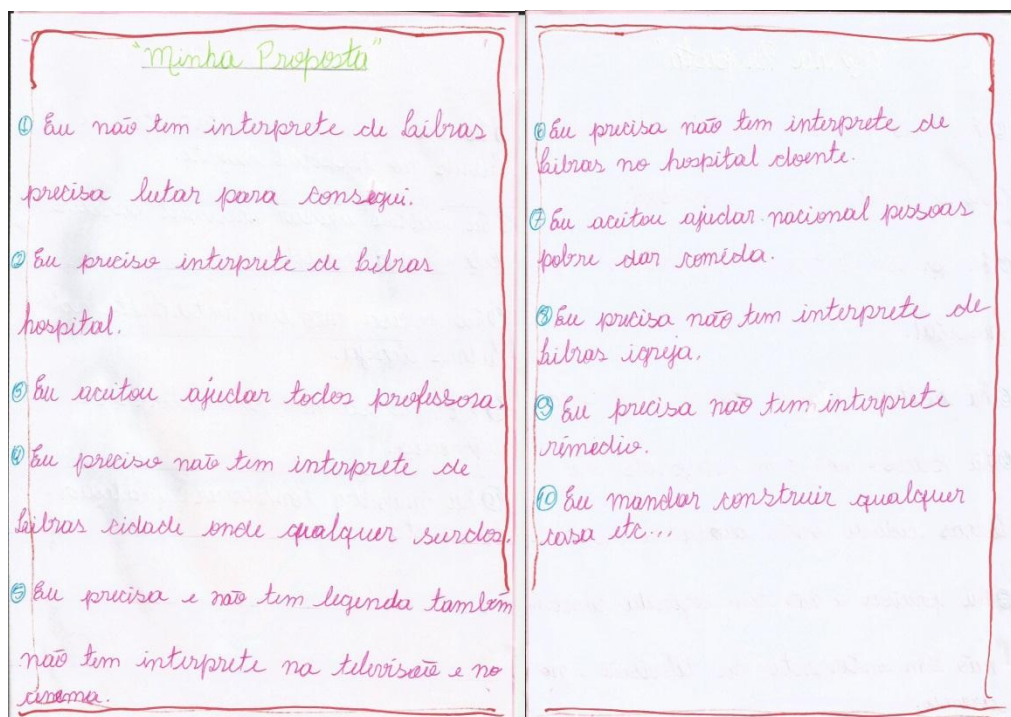 "Minha Proposta"
① Eu não tem interprete de Libras
precisa lutar para consegui.
② Eu preciso interprete de Libras
hospital.
③ Eu aceitou ajudar todos professora.
④ Eu preciso não tem interprete de
Libras cidade onde qualquer surdos.
⑤ Eu precisa e não tem legenda também
não tem interprete na televisão e no
cinema.
⑥ Eu precisa não tem interprete de
Libras no hospital doente.
⑦ Eu aceitou ajudar nacional pessoas
pobre dar comida.
⑧ Eu precisa não tem interprete de
Libras igreja.
⑨ Eu precisa não tem interprete
remédio.
⑩ Eu mandar construir qualquer
casa etc...